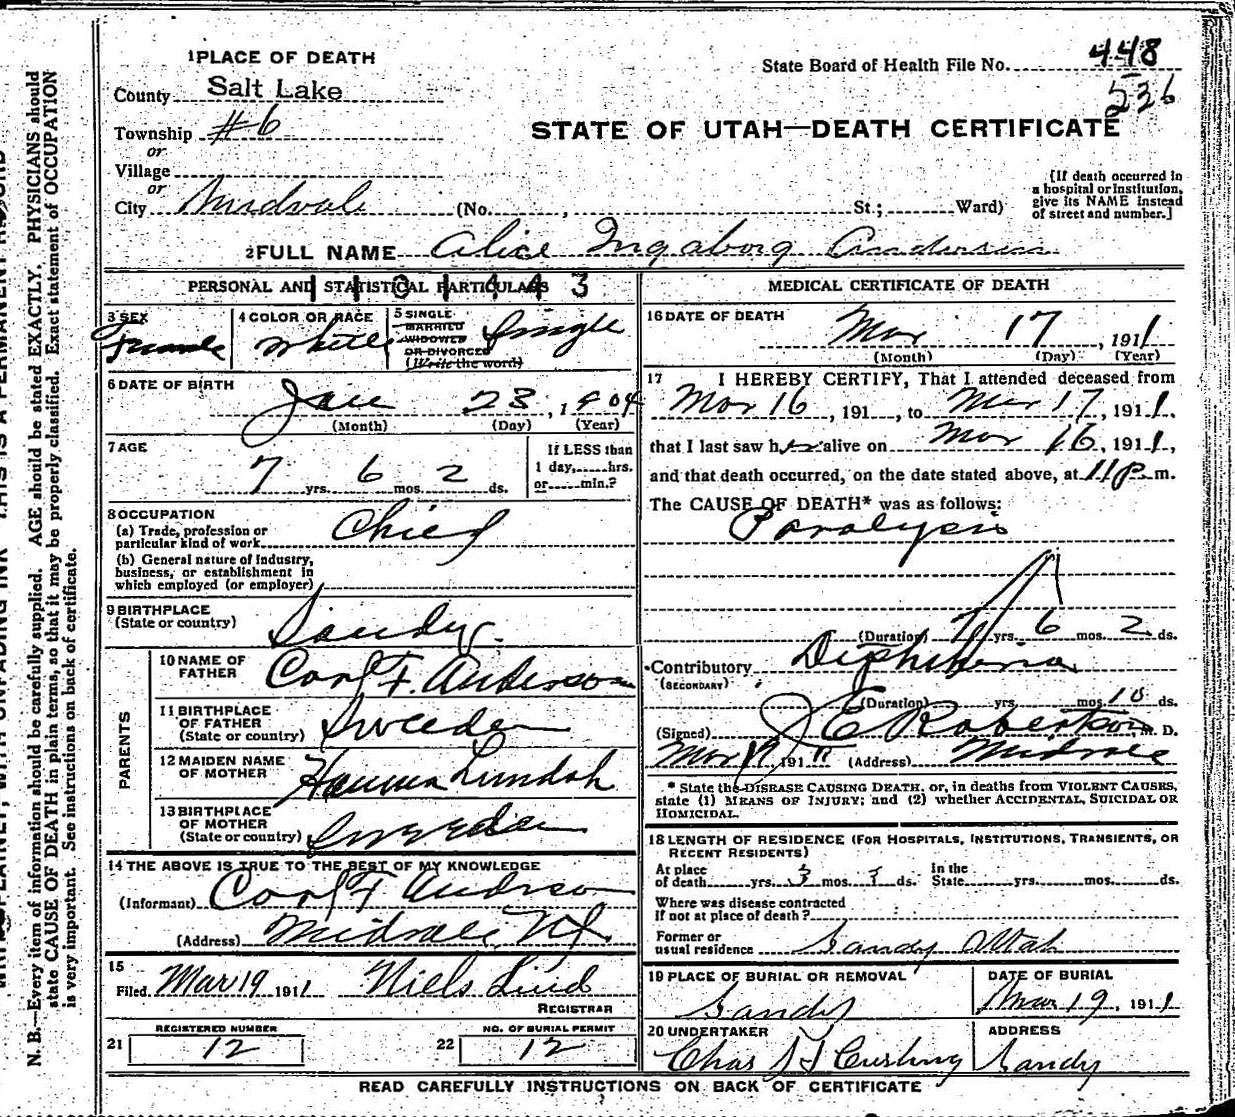 1 PLACE OF DEATH
County Salt Lake
Township #6
or
Village
or
City Midvale (No. , St.; Ward)
State Board of Health File No. 448
536
STATE OF UTAH—DEATH CERTIFICATE
[If death occurred in
a hospital or institution,
give its NAME instead
of street and number.]
2 FULL NAME Alice Ingaborg Anderson
PERSONAL AND STATISTICAL PARTICULARS
1101443
3 SEX
Female
4 COLOR OR RACE
White
5 SINGLE
MARRIED
WIDOWED
OR DIVORCED
(Write the word)
Single
6 DATE OF BIRTH
Jan 23, 1904
(Month) (Day) (Year)
7 AGE
7 yrs. 6 mos. 2 ds.
If LESS than
1 day, hrs.
or min.?
8 OCCUPATION
(a) Trade, profession or
particular kind of work Child
(b) General nature of Industry,
business, or establishment in
which employed (or employer)
9 BIRTHPLACE
(State or country) Sandy
PARENTS
10 NAME OF
FATHER Carl F. Anderson
11 BIRTHPLACE
OF FATHER
(State or country) Sweden
12 MAIDEN NAME
OF MOTHER Hanna Lundah
13 BIRTHPLACE
OF MOTHER
(State or country)
14 THE ABOVE IS TRUE TO THE BEST OF MY KNOWLEDGE
(Informant) Carl F Anderson
(Address) Midvale, Ut
15
Filed Mar 19 1911 Niels Lind
REGISTRAR
21 REGISTERED NUMBER
12
22 NO. OF BURIAL PERMIT
12
MEDICAL CERTIFICATE OF DEATH
16 DATE OF DEATH
Mar 17, 1911
(Month) (Day) (Year)
17 I HEREBY CERTIFY, That I attended deceased from
Mar 16, 191 , to Mar 17, 1911,
that I last saw her alive on Mar 16, 1911,
and that death occurred, on the date stated above, at 11 P m.
The CAUSE OF DEATH* was as follows:
Paralysis
(Duration) 7 yrs. 6 mos. 2 ds.
Contributory Diphtheria
(SECONDARY)
(Duration) yrs. mos. 10 ds.
(Signed) J E Robertson M. D.
Mar 19 1911 (Address) Midvale
* State the DISEASE CAUSING DEATH, or, in deaths from VIOLENT CAUSES,
state (1) MEANS OF INJURY; and (2) whether ACCIDENTAL, SUICIDAL OR
HOMICIDAL.
18 LENGTH OF RESIDENCE (FOR HOSPITALS, INSTITUTIONS, TRANSIENTS, OR
RECENT RESIDENTS)
At place In the
of death yrs. 3 mos. 3 ds. State yrs. mos. ds.
Where was disease contracted
if not at place of death?
Former or
usual residence Sandy Utah
19 PLACE OF BURIAL OR REMOVAL
Sandy
DATE OF BURIAL
Mar 19, 1911
20 UNDERTAKER
Chas Cushing
ADDRESS
Sandy
READ CAREFULLY INSTRUCTIONS ON BACK OF CERTIFICATE
N. B.—Every item of information should be carefully supplied. AGE should be stated EXACTLY. PHYSICIANS should
state CAUSE OF DEATH in plain terms, so that it may be properly classified. Exact statement of OCCUPATION
is very important. See instructions on back of certificate.